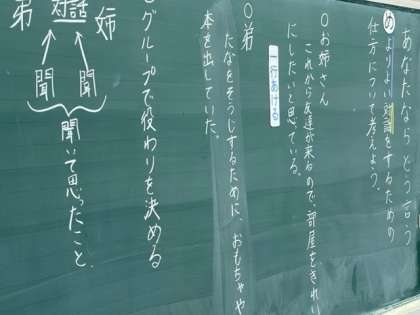 あなたならどう言う
め よりよい対話をするための
仕方について考えよう。
○お姉さん
これから友達が来るので、部屋をきれい
にしたいと思っている。
一行あける
○弟
たなをそうじするために、おもちゃや
本を出していた。
グループで役わりを決める
姉 対話 弟
聞 聞
聞いて思ったこと。